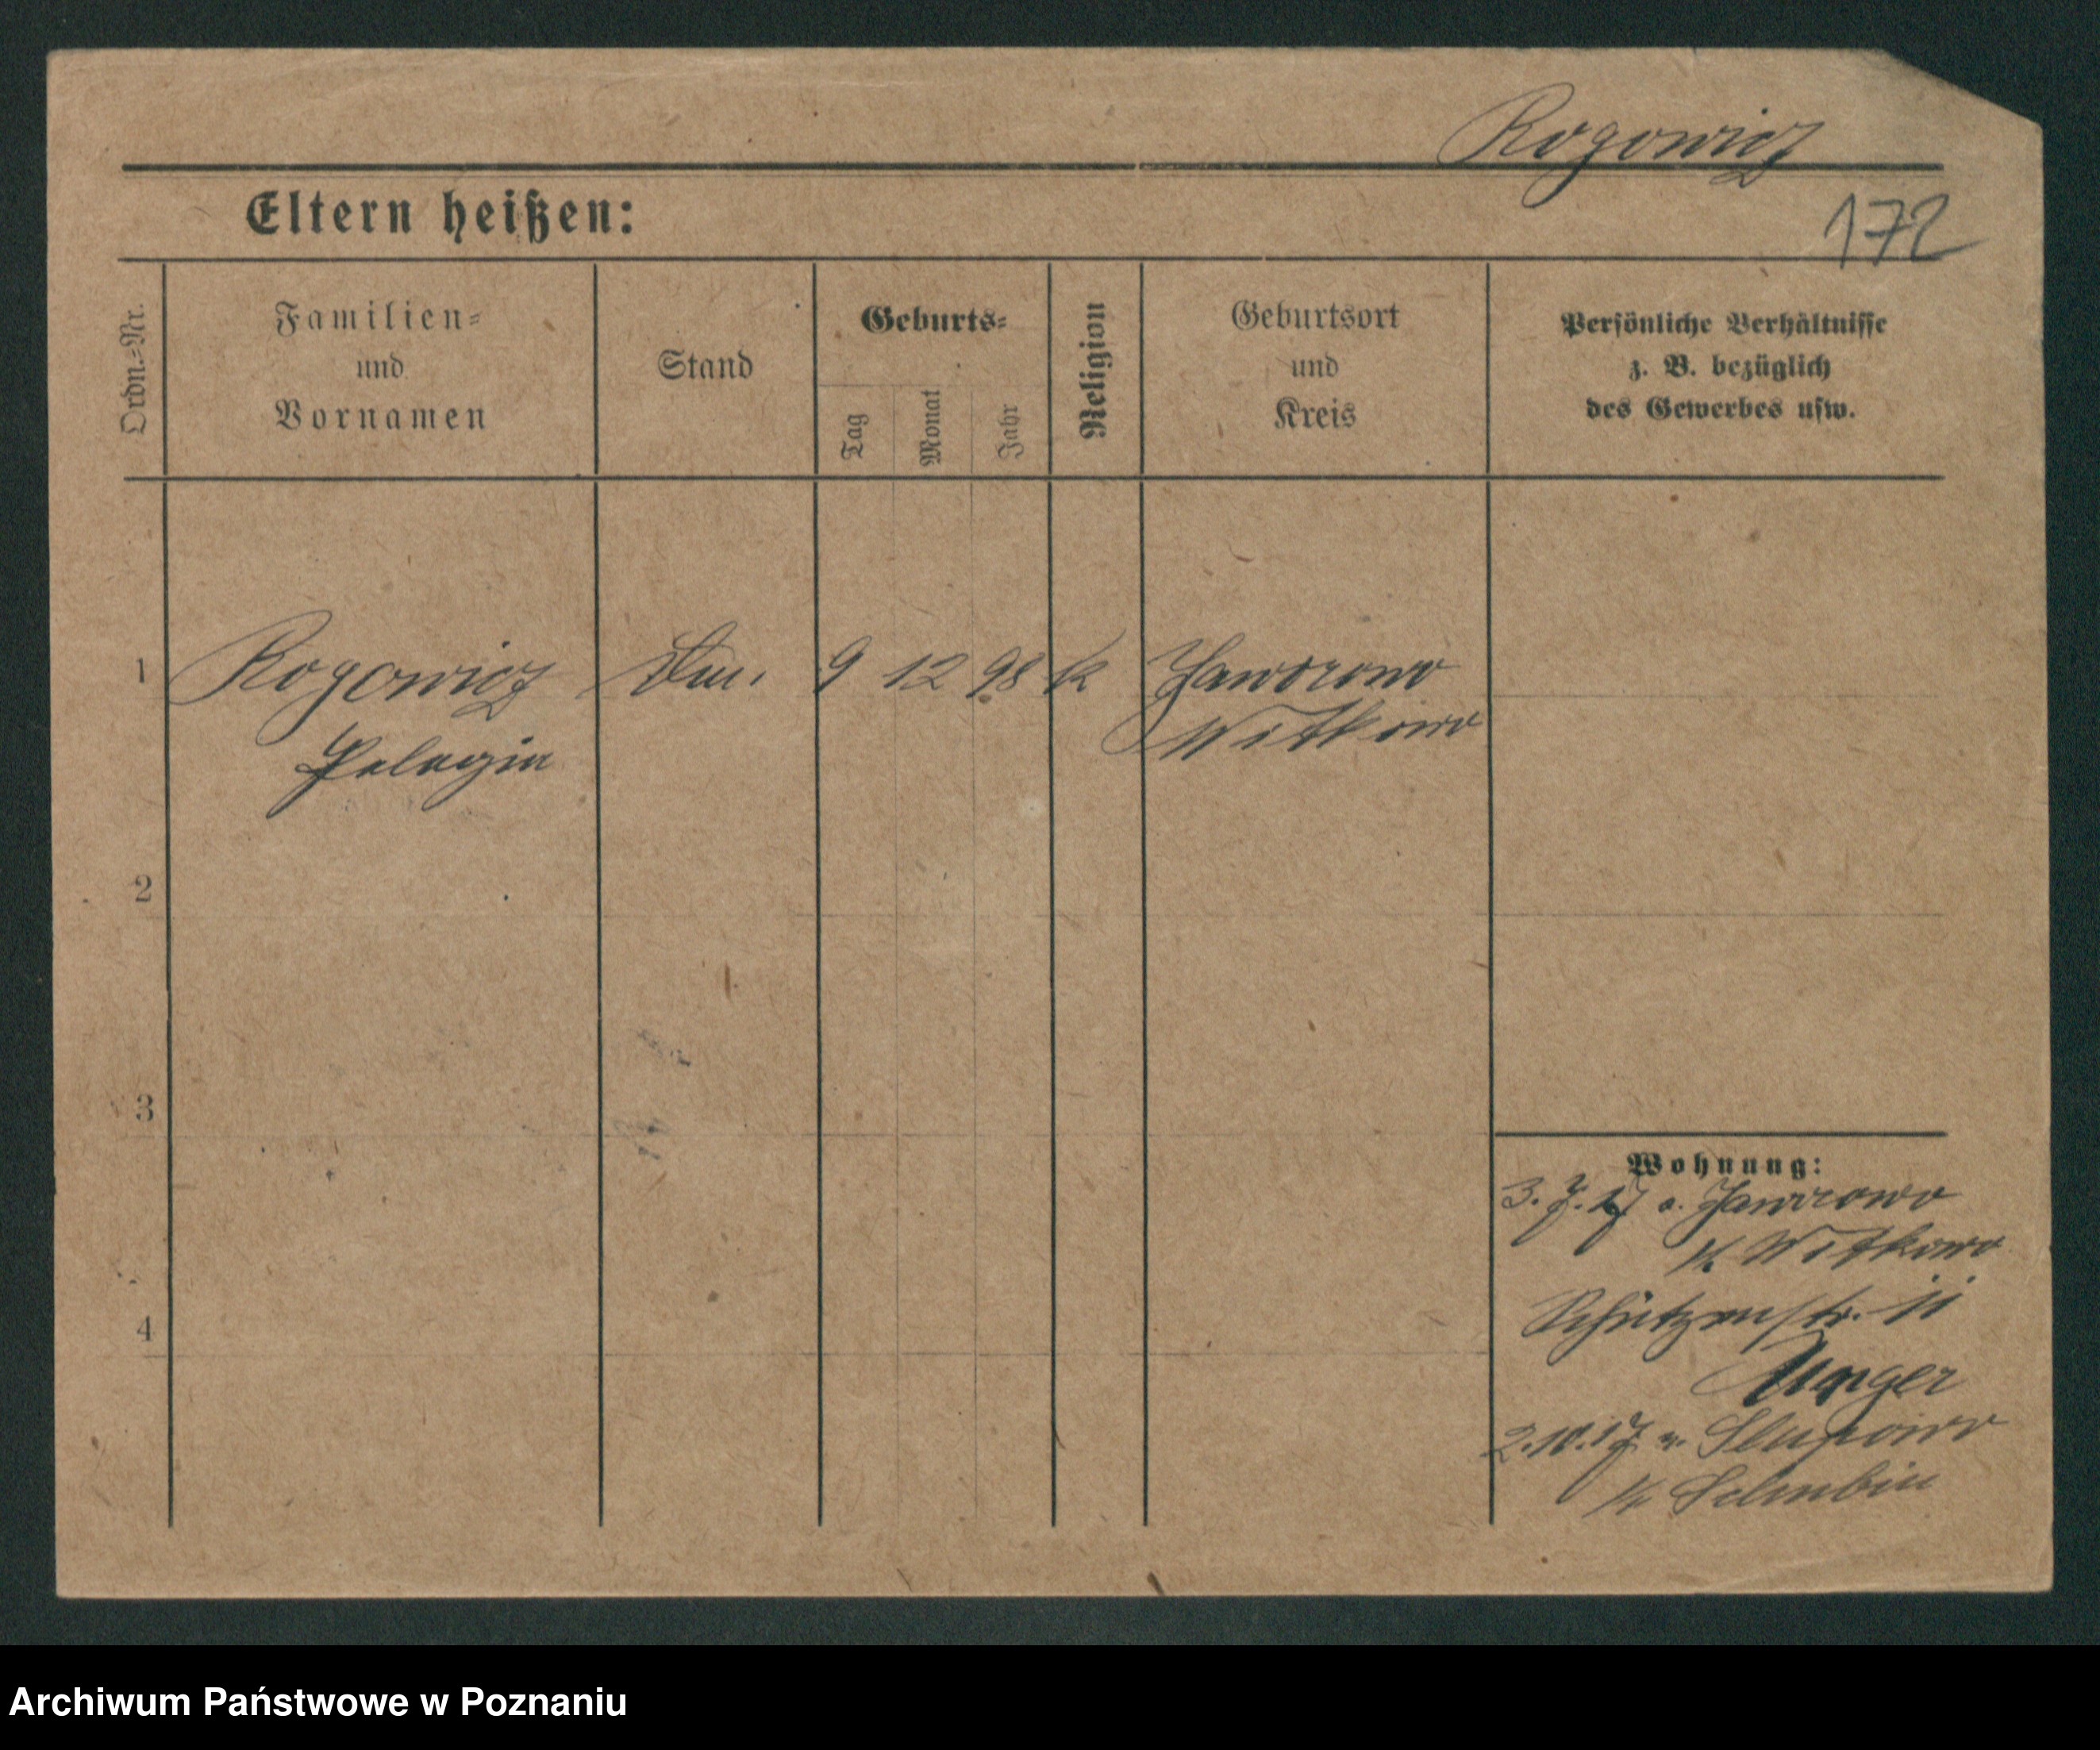 Rogowicz
172
Eltern heißen:
Ordn.-Nr.
Familien-
und
Vornamen
Stand
Geburts-
Tag
Monat
Jahr
Religion
Geburtsort
und
Kreis
Persönliche Verhältnisse
z. B. bezüglich
des Gewerbes usw.
1 Rogowicz 9 12 98 k Jaworowo
Pelagia Witkowo
2
3
4
Wohnung:
3. 7. 17 a. Jaworowo
K. Witkowo
Schützenstr. 11
Unger
2.10.17 n. Slupowo
K. Schubin
Archiwum Państwowe w Poznaniu